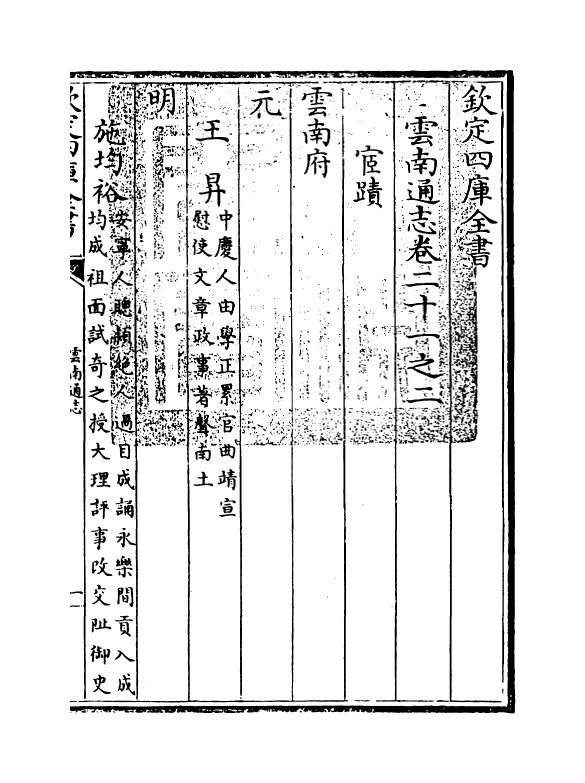 欽定四庫全書
雲南通志卷二十一之二
宦蹟
雲南府
元
王昇
中慶人由學正累官曲靖宣
慰使文章政事著聲南土
明
施均裕
安寧人聰頴絶人過目成誦永樂間貢入成
均成祖面試奇之授大理評事改交阯御史
欽定四庫全書
雲南通志
一